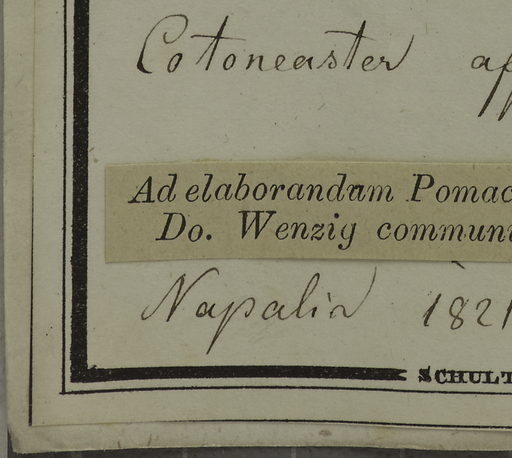 Cotoneaster af
Ad elaborandam Pomac
Do. Wenzig commun
Napalia 1821
SCHULT